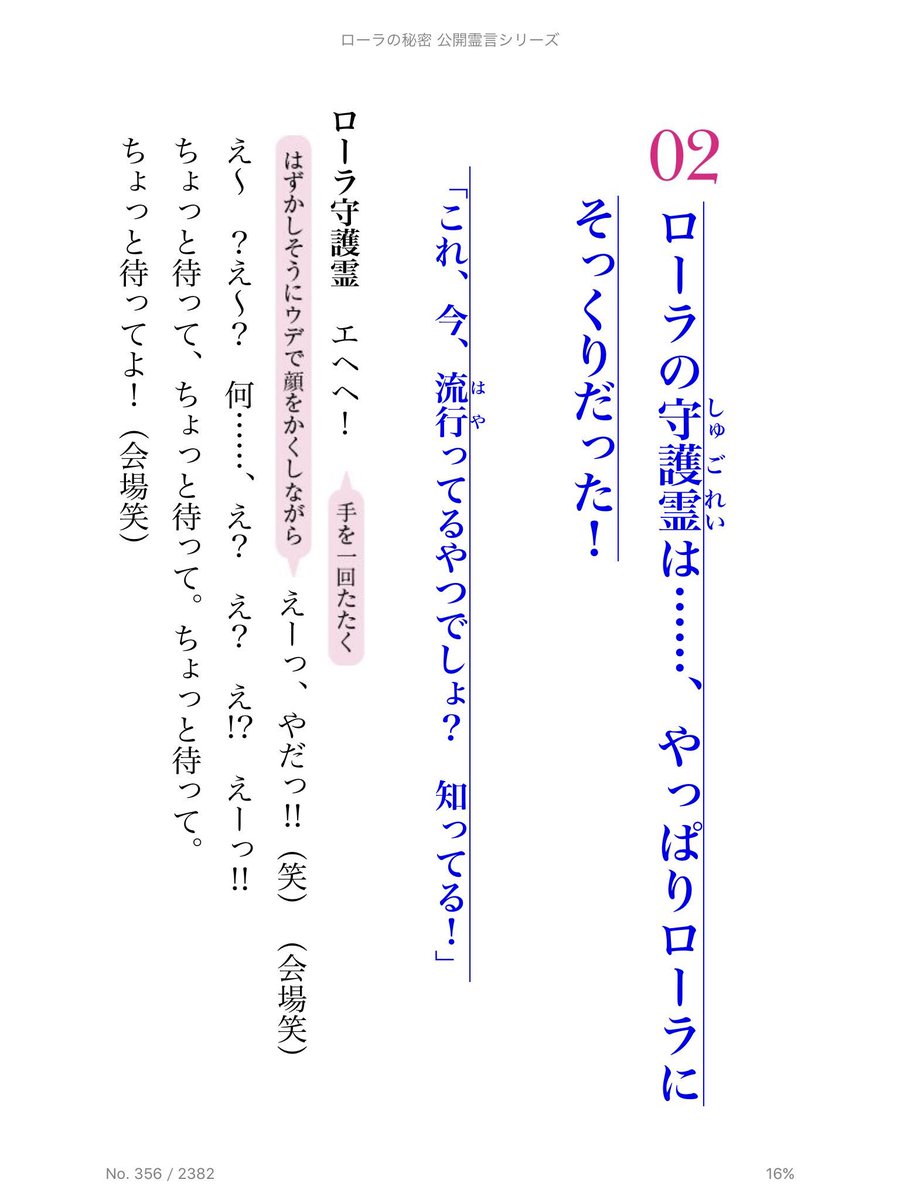 ローラの秘密 公開霊言シリーズ
02
ローラの守護霊は……、やっぱりローラに
しゅごれい
そっくりだった！
「これ、今、流行ってるやつでしょ？　知ってる！」
はや
ローラ守護霊　エヘヘ！　手を一回たたく
はずかしそうにウデで顔をかくしながら　えーっ、やだっ!!（笑）（会場笑）
え〜　？え〜？　何……、え？　え？　え!?　えーっ!!
ちょっと待って、ちょっと待って。ちょっと待って。
ちょっと待ってよ！（会場笑）
No. 356 / 2382
16%